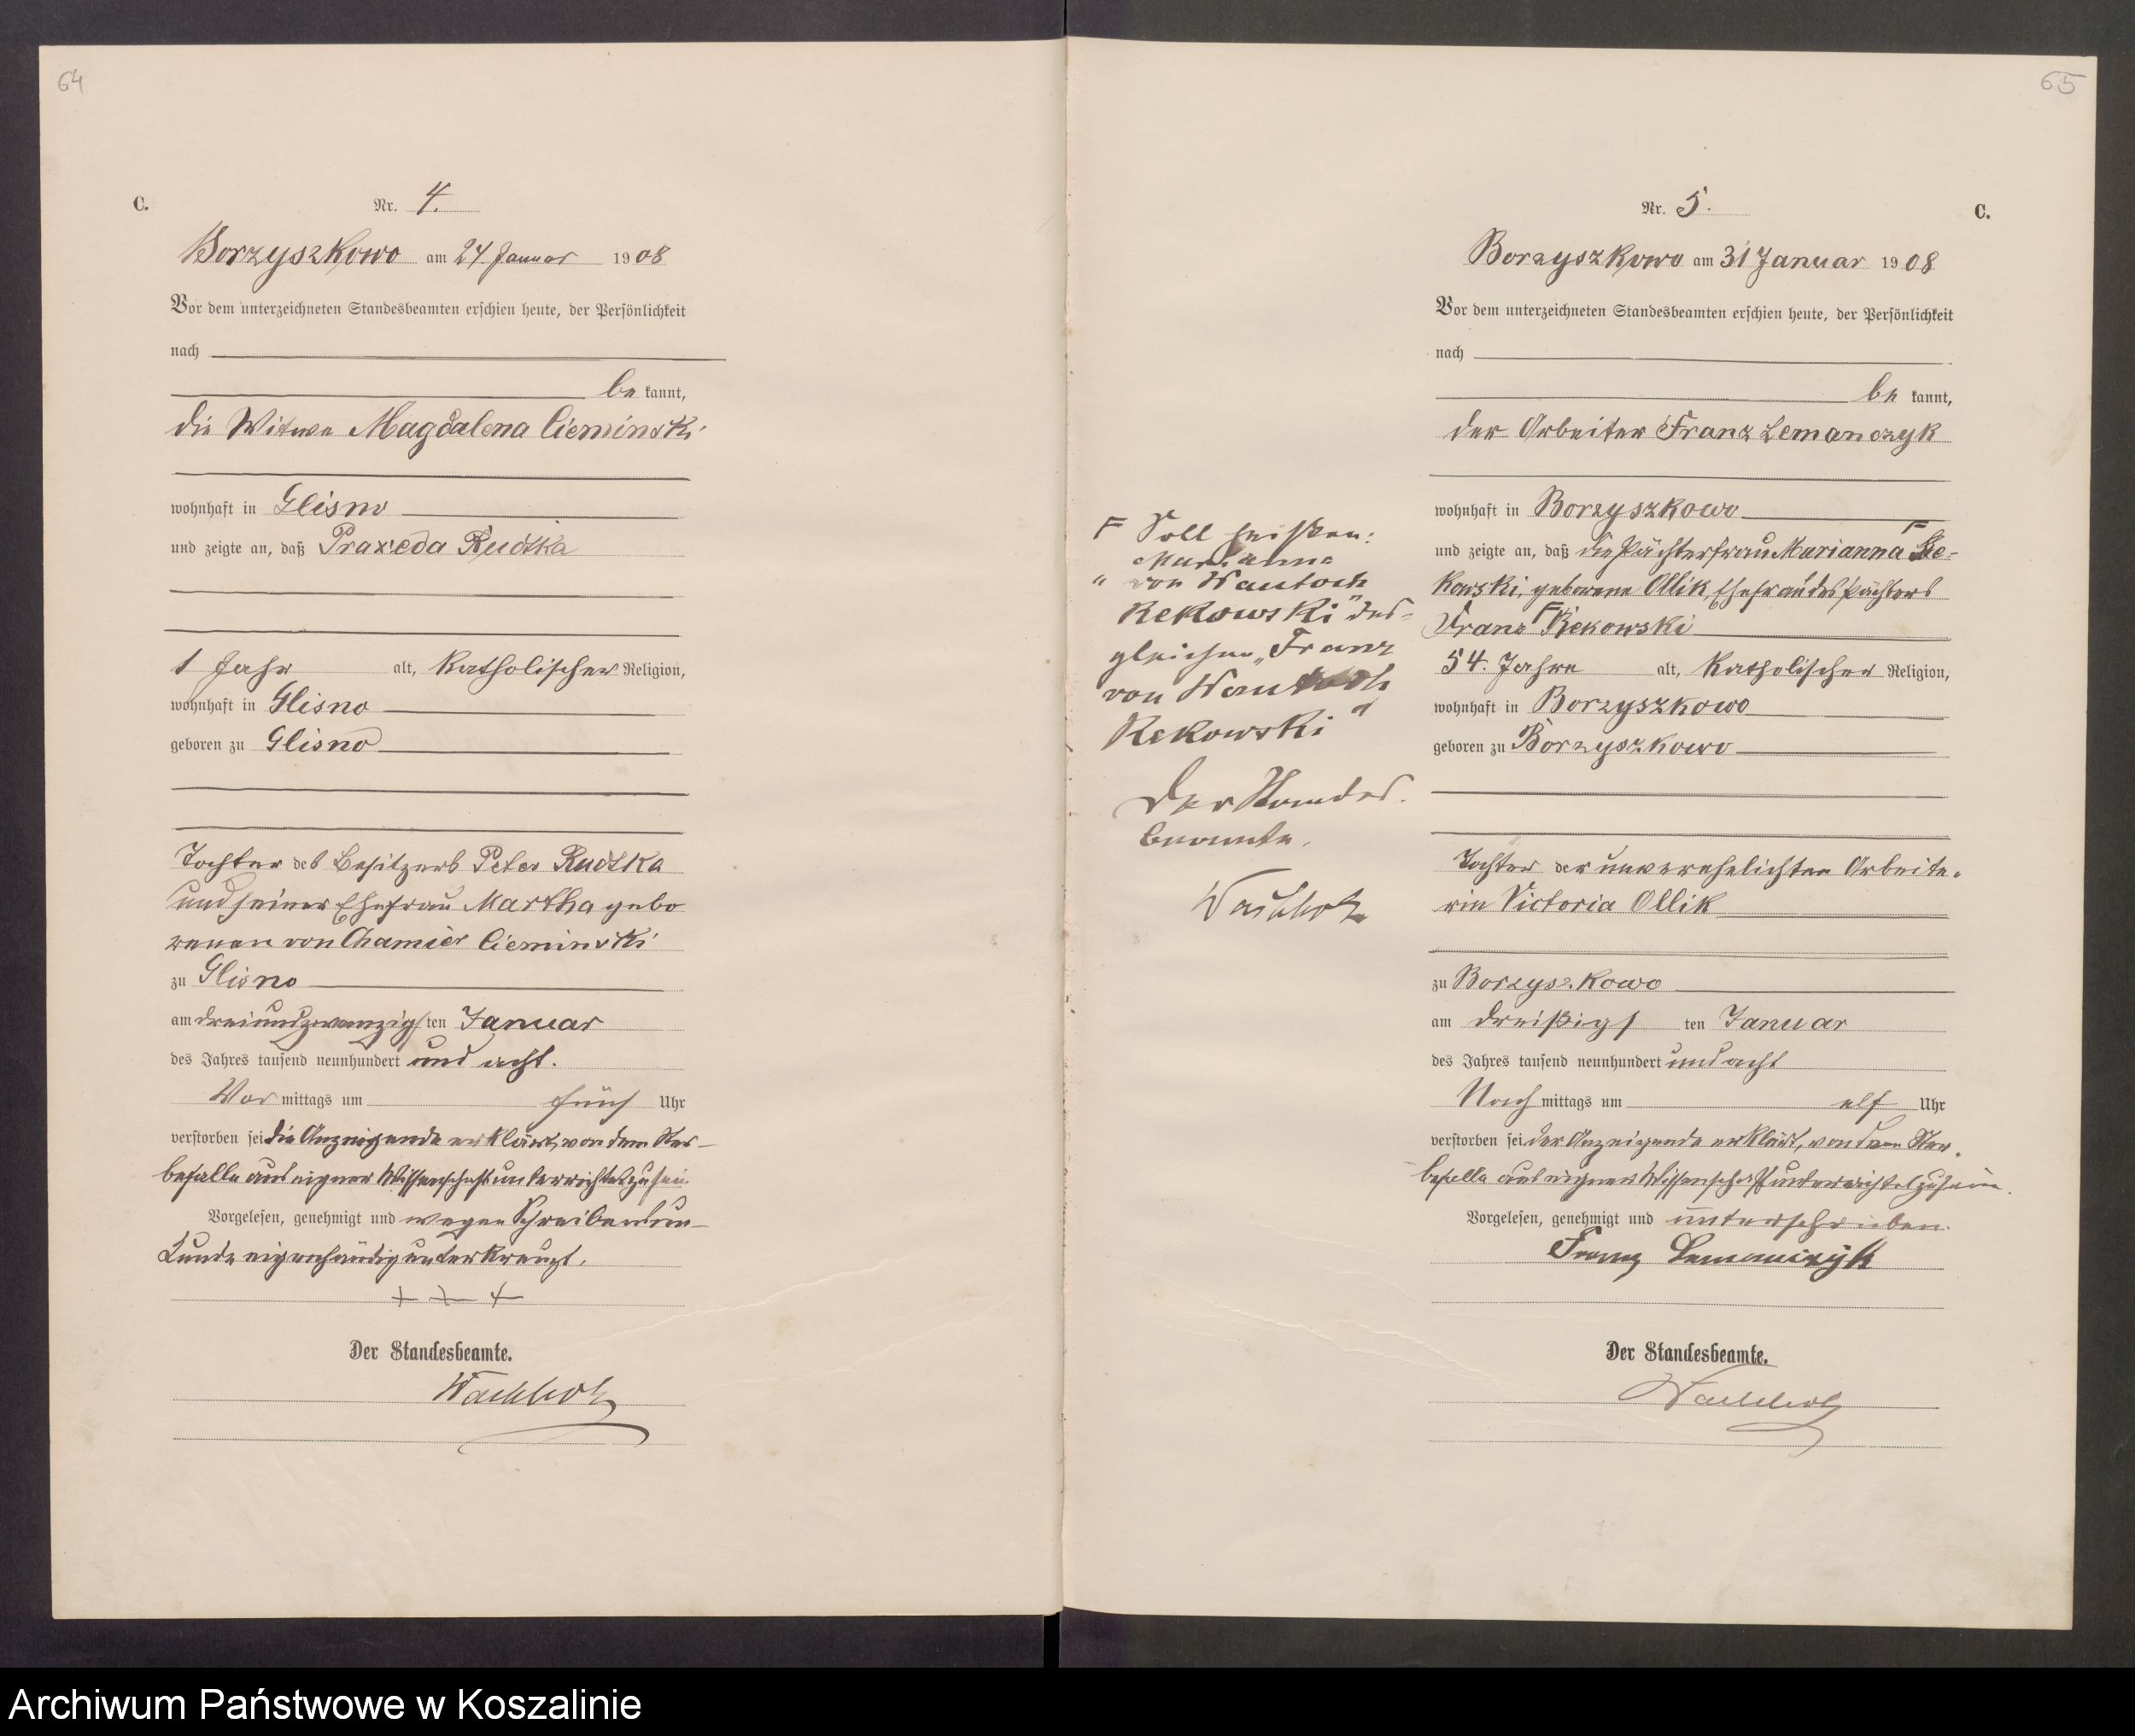 64
C.
Nr. 4.
Borzyszkowo am 24 Januar 1908
Vor dem unterzeichneten Standesbeamten erschien heute, der Persönlichkeit
nach
be kannt,
die Witwe Magdalena Cieminski
wohnhaft in Glisno
und zeigte an, daß Praxeda Rudzka
1 Jahr alt, katholischer Religion,
wohnhaft in Glisno
geboren zu Glisno
Tochter des Besitzers Peter Rudzka
und seiner Ehefrau Martha gebo
renen von Chamier Cieminski
zu Glisno
am dreiundzwanzigsten Januar
des Jahres tausend neunhundert und acht.
Vor mittags um fünf Uhr
verstorben sei die Anzeigende erklärt, von dem Ster-
befalle aus eigner Wissenschaft unterrichtet zu sein
Vorgelesen, genehmigt und wegen Schreibensun-
kunde eigenhändig unterkreuzt.
+ + +
Der Standesbeamte.
Wachholz
65
Nr. 5.
C.
Borzyszkowo am 31 Januar 1908
Vor dem unterzeichneten Standesbeamten erschien heute, der Persönlichkeit
nach
be kannt,
der Arbeiter Franz Lemanczyk
wohnhaft in Borzyszkowo
und zeigte an, daß die Pächterfrau Marianna Re-
kowski, geborene Ollik, Ehefrau des Pächters
Franz Rekowski
54. Jahre alt, katholischer Religion,
wohnhaft in Borzyszkowo
geboren zu Borzyszkowo
Tochter der unverehelichten Arbeite-
rin Victoria Ollik
zu Borzyszkowo
am dreißigsten Januar
des Jahres tausend neunhundert und acht
Nach mittags um elf Uhr
verstorben sei der Anzeigende erklärt, von dem Ster-
befalle aus eigner Wissenschaft unterrichtet zu sein.
Vorgelesen, genehmigt und unterschrieben.
Franz Lemanczyk
Der Standesbeamte.
Wachholz
F Soll heißen:
Marianna
"von Wantoch
Rekowski" des-
gleichen "Franz
von Wantoch
Rekowski"
Der Standes-
beamte.
Wachholz
Archiwum Państwowe w Koszalinie